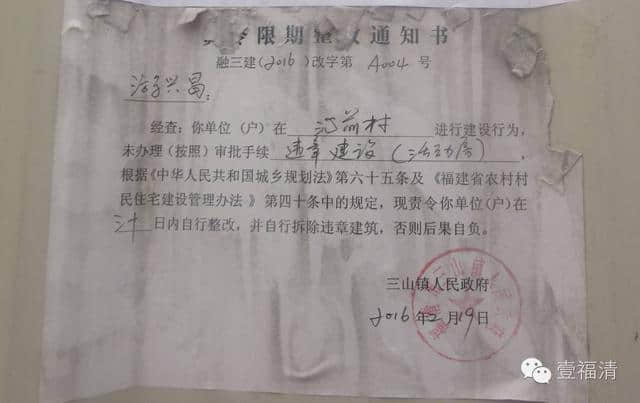 限期整改通知书
融三建(2016)改字第 A004 号
游兴昌：
经查：你单位（户）在 前村 进行建设行为，
未办理（按照）审批手续 违章建设（活动房），
根据《中华人民共和国城乡规划法》第六十五条及《福建省农村村
民住宅建设管理办法》第四十条中的规定，现责令你单位(户)在
日内自行整改，并自行拆除违章建筑，否则后果自负。
三山镇人民政府
2016年2月19日
三山镇人民
壹福清